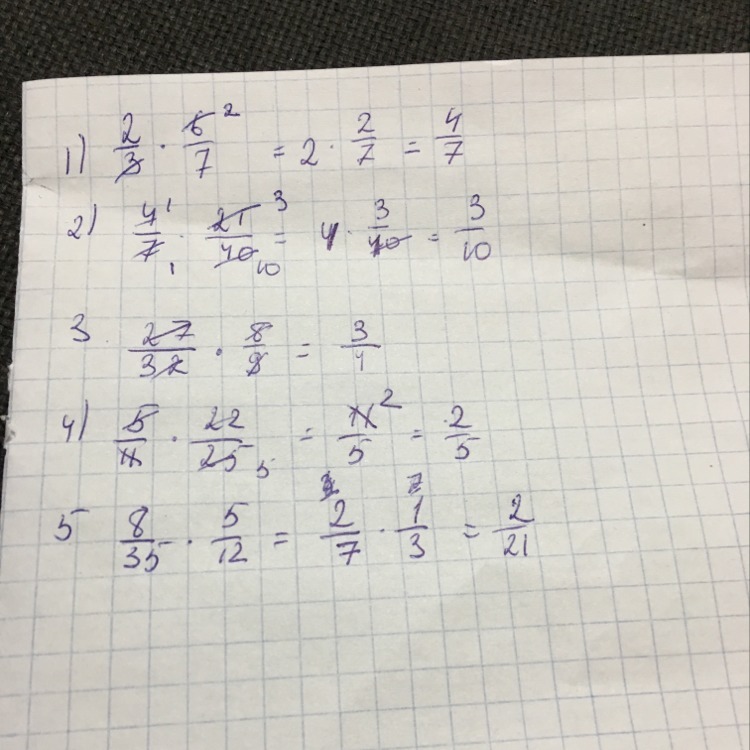 1) 2/3 · 6/7 ² = 2 · 2/7 = 4/7
2) 4/7 ¹ ₁ · 21/40 ³ ₁₀ = 4 · 3/40 = 3/10
3 27/32 · 8/9 = 3/4
4) 5/11 · 22/25 ₅ = 11/5 ² = 2/5
5 8/35 · 5/12 = 2/7 · 1/3 = 2/21